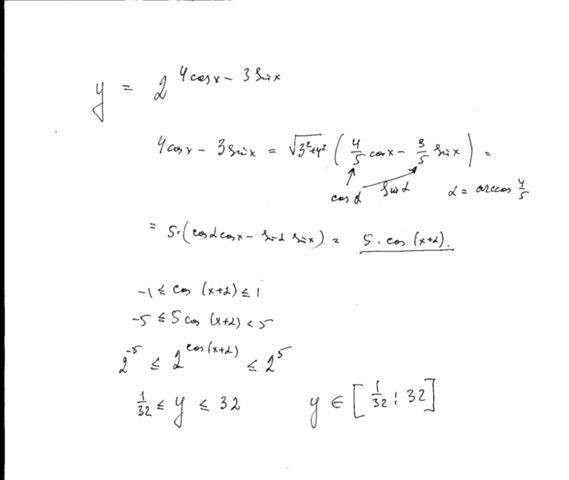 y = 2^{4cosx - 3sinx}
4cosx - 3sinx = √(3²+4²) (4/5 cosx - 3/5 sinx) =
cosα sinα α = arccos 4/5
= 5·(cosαcosx - sinα sinx) = 5·cos(x+α).
-1 ≤ cos(x+α) ≤ 1
-5 ≤ 5cos(x+α) < 5
2^{-5} ≤ 2^{cos(x+α)} ≤ 2^5
1/32 ≤ y ≤ 32 y ∈ [1/32; 32]